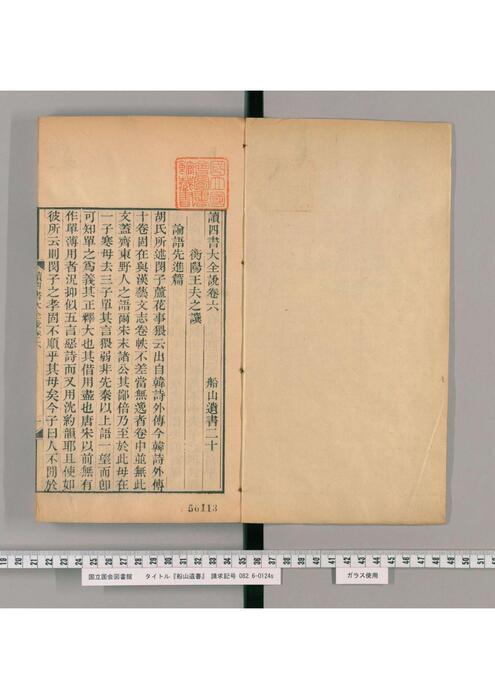 讀四書大全說卷六
船山遺書二十
衡陽王夫之譔
論語先進篇
胡氏所述閔子蘆花事猥云出自韓詩外傳今韓詩外傳
十卷固在與漢藝文志卷帙不差當無逸者卷中並無此
文蓋齊東野人之語爾宋末諸公其鄙倍乃至於此母在
一子寒母去三子單其言猥弱非先秦以上語一望而卽
可知單之爲義其正釋大也其借用盡也唐宋以前無有
作單薄用者況抑似五言惡詩而又用沈約韻耶且使如
彼所云則閔子之孝固不順乎其母矣今子曰人不閒於
讀四書大全說卷六
一
56113
19 20 21 22 23 24 25 26 27 28 29 30 31 32 33 34 35 36 37 38 39 40 41 42 43 44 45 46 47 48 49 50 51 52
国立国会図書館 タイトル『船山遺書』 請求記号 082.6-0124s
ガラス使用